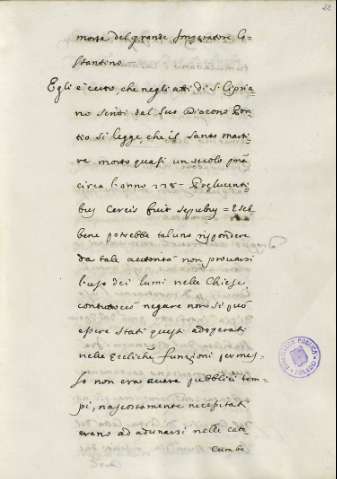 22
morte del grande Imperatore Co-
stantino.
Egli è certo, che negli atti di S. Cipria
no scritti dal suo Diacono Pon
zio si legge, che il santo marti
re morto quasi un secolo pria
circa l'anno
bus Cereis fuit sepultus = E seb
bene potrebbe taluno rispondere
da tale autorità non provarsi
l'uso dei lumi nelle Chiese,
contuttociò negare non si può
essere stati questi adoperati
nelle Ecclesiche funzioni, per mes-
so non era avere pubblici tem-
pi, nascostamente necessitati
erano ad adunarsi nelle cata
combe